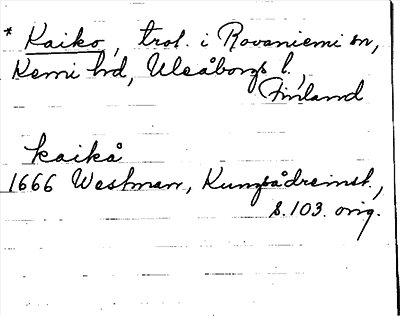 * Kaiko, trol. i Rovaniemi sn,
Kemi hd, Uleåborgs l.,
Finland
kaikå
1666 Westman, Kungsådreinst.,
s. 103. orig.